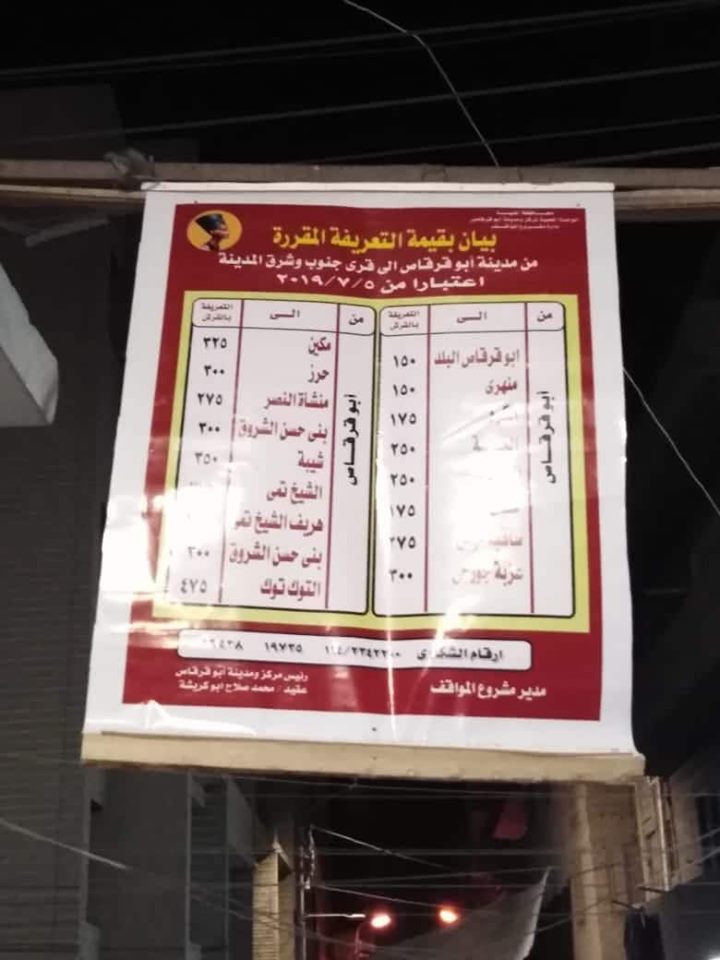 محافظة المنيا
الوحدة المحلية لمركز ومدينة أبو قرقاص
بيان بقيمة التعريفة المقررة
من مدينة أبو قرقاص الى قرى جنوب وشرق المدينة
اعتبارا من ٢٠١٩/٧/٥
من الى التعريفة بالقرش
أبو قرقاص
ابو قرقاص البلد ١٥٠
منهرى ١٥٠
١٧٥
٢٥٠
٢٥٠
١٧٥
٢٧٥
عزبة جورجى ٣٠٠
من الى التعريفة بالقرش
أبو قرقاص
مكين ٣٢٥
حرز ٣٠٠
منشاة النصر ٢٧٥
بنى حسن الشروق ٣٠٠
شيبة ٣٥٠
الشيخ تمى
هريف الشيخ تمى
بنى حسن الشروق ٣٠٠
التوك توك ٤٧٥
ارقام الشكاوى ١٩٧٣٥
مدير مشروع المواقف
رئيس مركز ومدينة أبو قرقاص
عقيد / محمد صلاح ابو كريشة